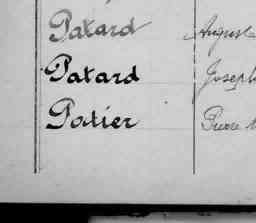 Patard August
Patard Joseph
Potier Pierre